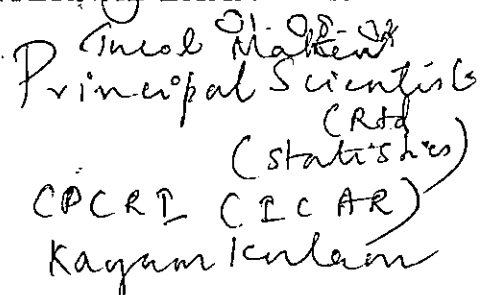 Principal Scientist
(Rtd
(Statistics)
CPCRI (ICAR)
Kayamkulam